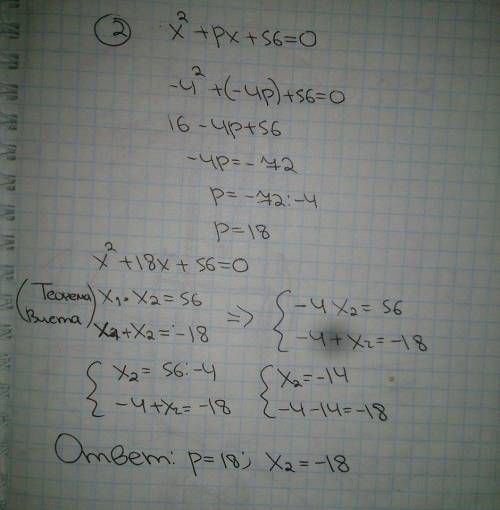 ② x² + px + 56 = 0
-4² + (-4p) + 56 = 0
16 - 4p + 56
-4p = -72
p = -72 : -4
p = 18
x² + 18x + 56 = 0
(Теорема Виета) x₁ · x₂ = 56 => { -4x₂ = 56
x₁ + x₂ = -18 -4 + x₂ = -18
{ x₂ = 56 : -4 { x₂ = -14
-4 + x₂ = -18 -4 - 14 = -18
Ответ: p = 18; x₂ = -18